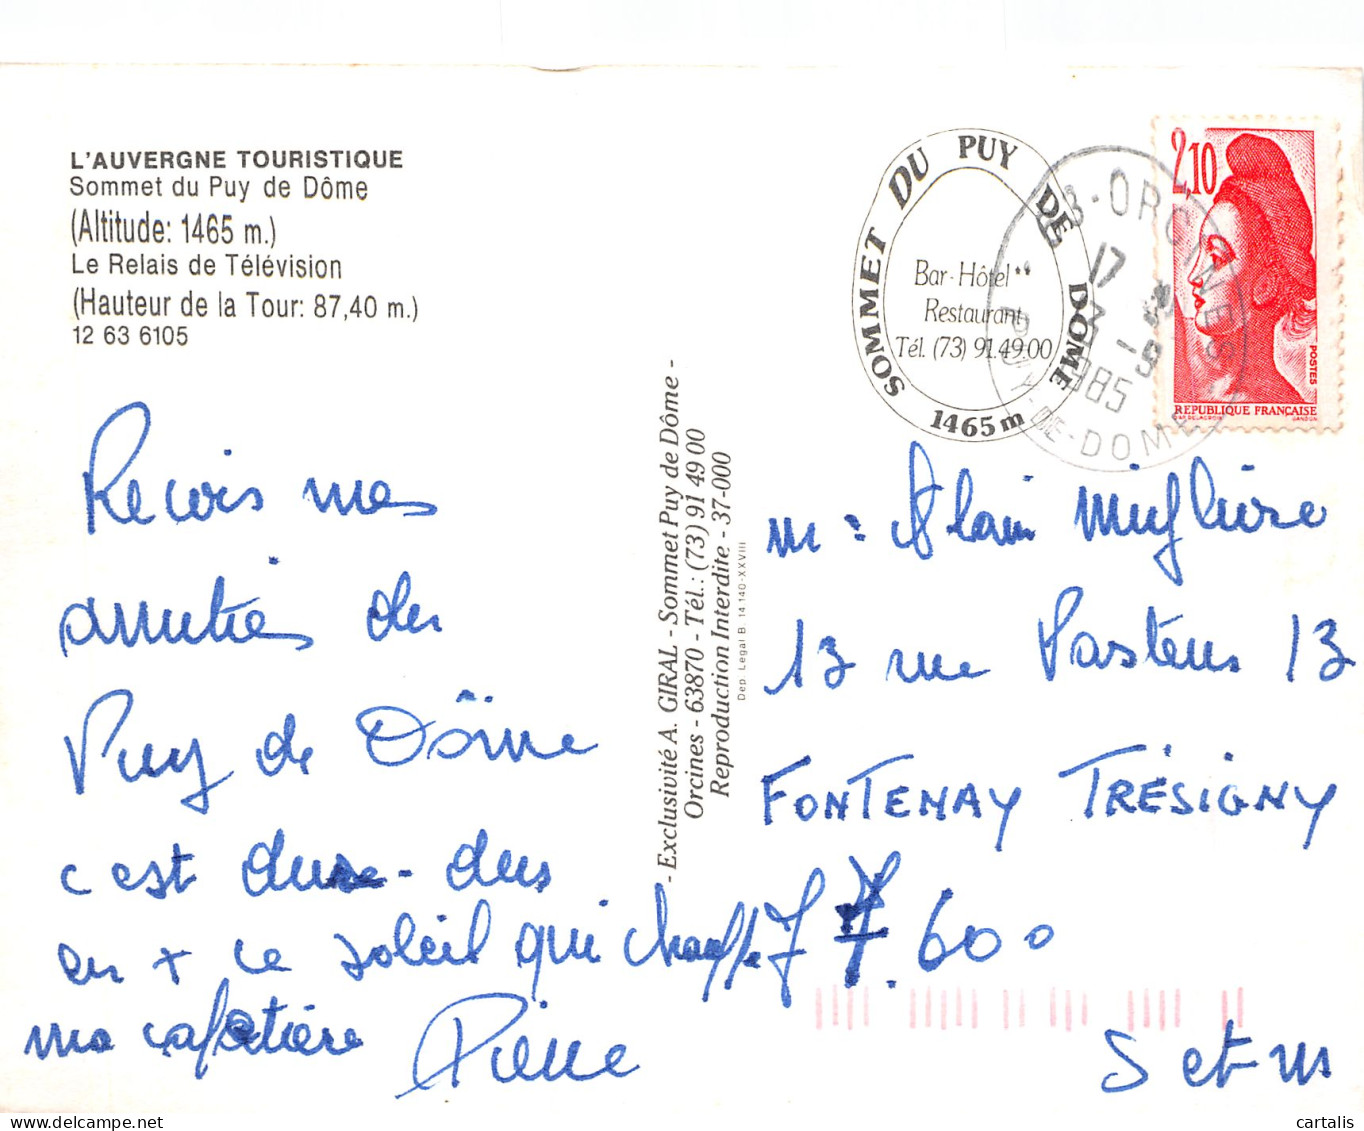 L'AUVERGNE TOURISTIQUE
Sommet du Puy de Dôme
(Altitude: 1465 m.)
Le Relais de Télévision
(Hauteur de la Tour: 87,40 m.)
12 63 6105
Recois mes
amitiés du
Puy de Dôme
c'est dure - dus
en + le soleil qui chauffe
ma cafetière
Pierre
- Exclusivité A. GIRAL - Sommet Puy de Dôme -
Orcines - 63870 - Tél.: (73) 91 49 00
Reproduction Interdite - 37-000
Dep. Legal B. 14.140-XXVIII
SOMMET DU PUY DE DOME
Bar-Hôtel**
Restaurant
Tél. (73) 91.49.00
1465 m
ORCINES
17
1985
PUY-DE-DOME
2,10
POSTES
REPUBLIQUE FRANÇAISE
mr: Alain
13 rue Pasteur 13
FONTENAY TRÉSIGNY
77.600
S et m
cartalis